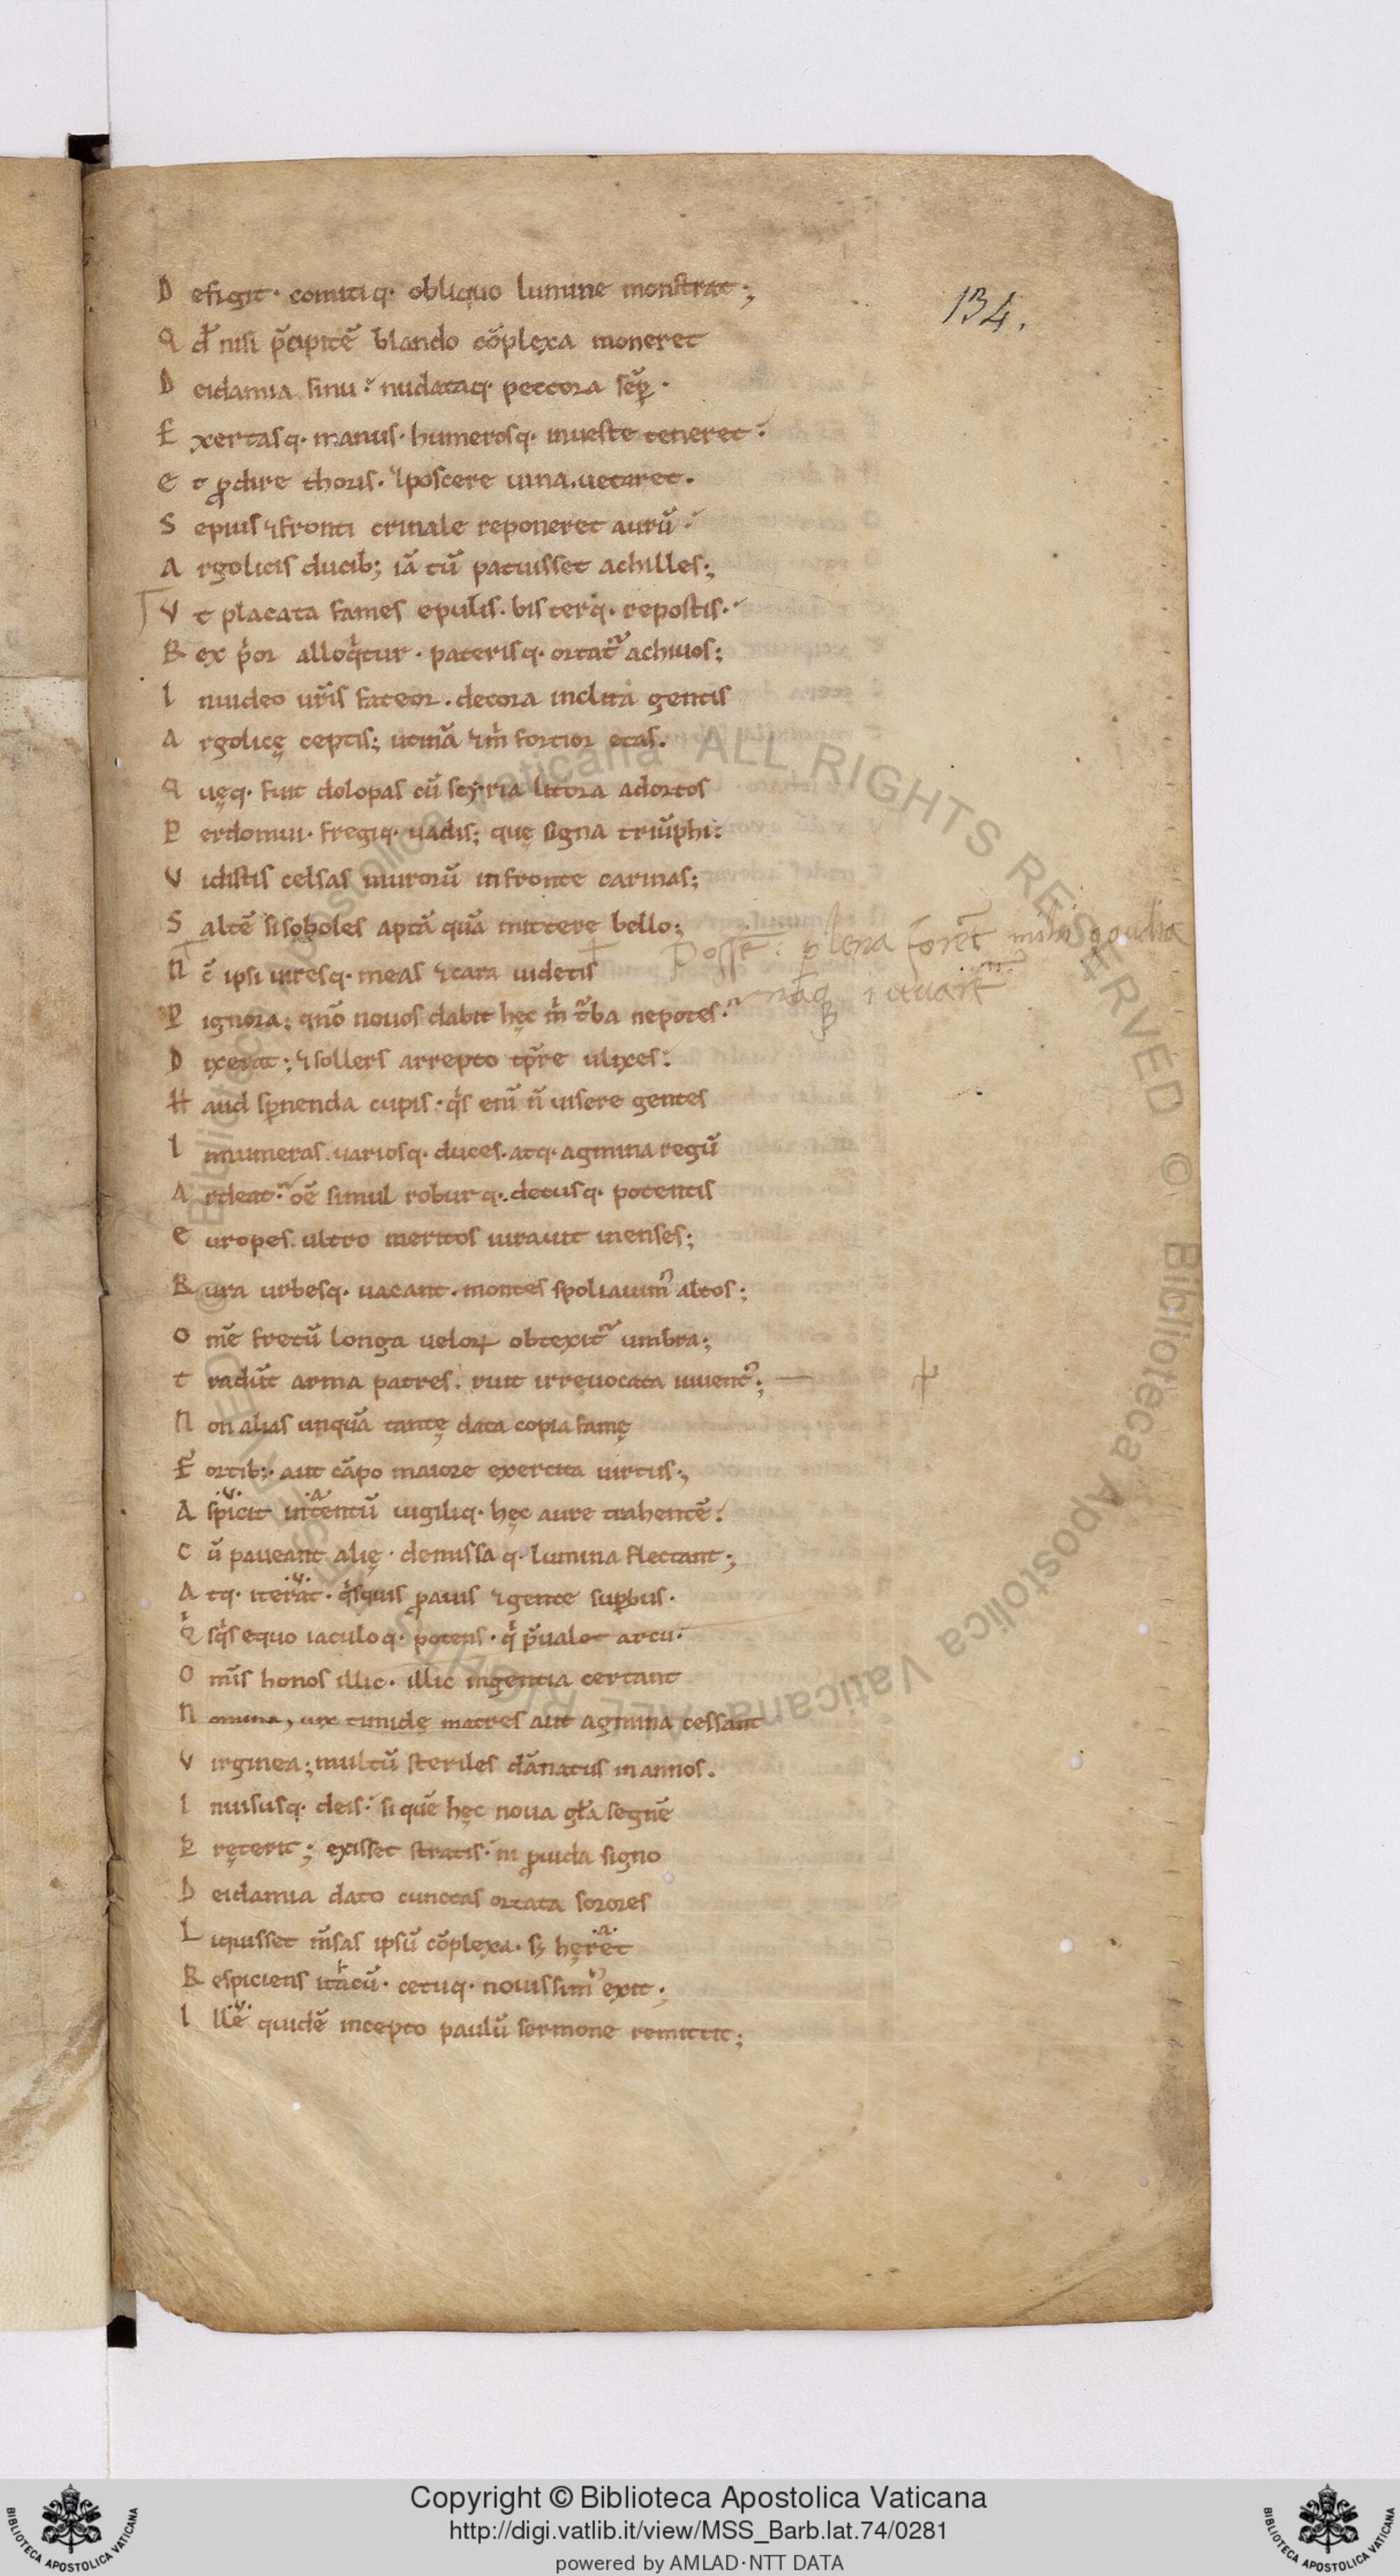 134.
D efigit· comitiq· obliquo lumine monstrat;
Q d̄ nisi p̄cipitē blando cōplexa moneret
D eidamia sinu· nudataq· pectora sēꝑ·
E xertasq· manus· humerosq· inueste teneret·
E t ꝓdire thoris· ⁊poscere uina.uetaret.
S epius ⁊fronti crinale reponeret aurū·
A rgolicis ducib; iā tū patuisset achilles;
V t placata fames epulis· bis terq· repostis·
R ex p̓or alloq̓tur· paterisq· ortat᷑ achiuos;
I nuideo ur̄is fateor· decora inclita gentis
A rgolicę ceptis; utinā ⁊m̓ fortior etas.
Q uęq· fuit dolopas cū scyria litora adortos
P erdomui· fregiq· uadis; quę signa triūphi:
V idistis celsas murorū infronte carinas;
S altē sisoboles aptā quā mittere bello;
Possē. plena forēt mihi gaudia
nāq iuuarē
N c̄ ipsi uiresq· meas ⁊cara uidetis
P ignora; qn̄o nouos dabit hęc m̓ t᷑ba nepotes·
D ixerat; ⁊sollers arrepto tp̄re ulixes:
H aud sꝑnenda cupis· q̓s enī n̄ uisere gentes
I nnumeras.uariosq· duces.atq· agmina regū
A rdeat· oē simul roburq·.decusq· potentis
E uropes.ultro meritos iurauit inenses;
R ura urbesq· uacant.montes spoliauim᾿ altos;
O mē fretū longa ueloꝝ obtexit᷑ umbra;
T radūt arma patres. ruit irreuocata iuuent᾿;
N on alias unquā tantę data copia famę
F ortib;· aut cāpo maiore exercita uirtus;
A sp̓icit intentū uigiliq· hęc aure trahentē:
C ū paueant alię· demissaq· lumina flectant;
A tq· iterat· q̓squis ꝓauis ⁊gente suꝑbus·
Q̓ sq̓s equo iaculoq· potens· q̓ p̄ualet arcu·
O mīs honos illic· illic ingentia certant
N omina, uix timidę matres aut agmina cessant
V irginea; multū steriles dānatus inannos.
I nuisusq· deis· si quē hęc noua gl̄a segnē
P ręterit; exisset stratis· ni ꝓuida signo
D eidamia dato cunctas ortata sorores
L iquisset m̄sas ipsū cōplexa· sꝫ hęrēt
R espiciens itacū· cetuq· nouissim᾿ exit;
I llē quidē incepto paulū sermone remittit;
Copyright © Biblioteca Apostolica Vaticana
http://digi.vatlib.it/view/MSS_Barb.lat.74/0281
powered by AMLAD·NTT DATA
© Biblioteca Apostolica Vaticana ALL RIGHTS RESERVED
BIBLIOTECA APOSTOLICA VATICANA
BIBLIOTECA APOSTOLICA VATICANA